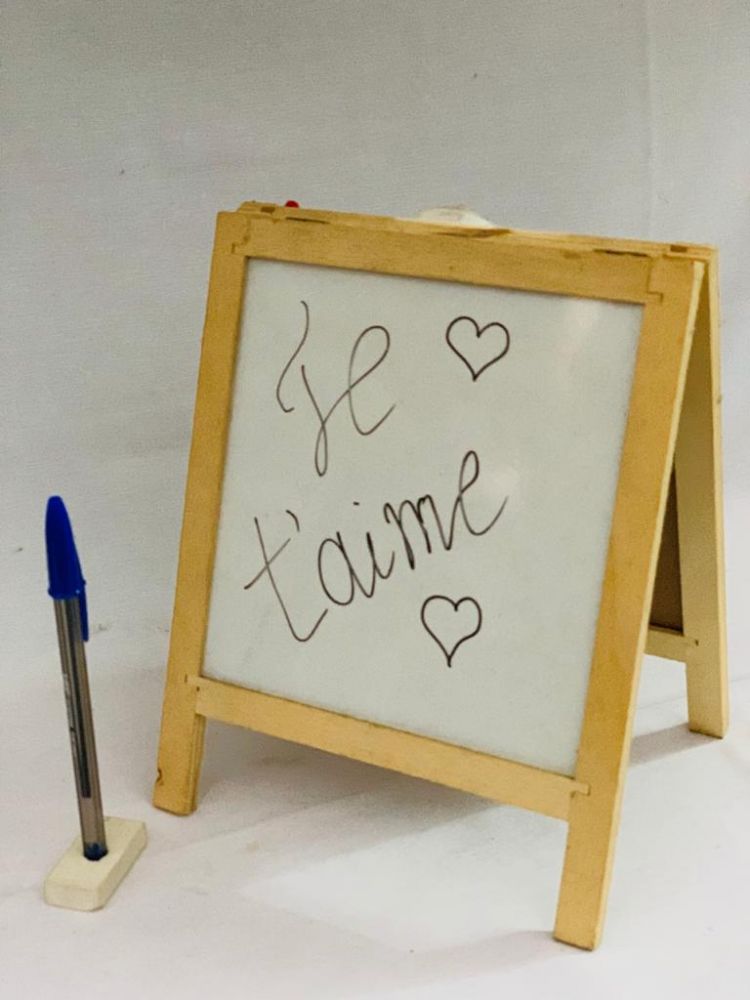 Je ♡
t'aime
♡